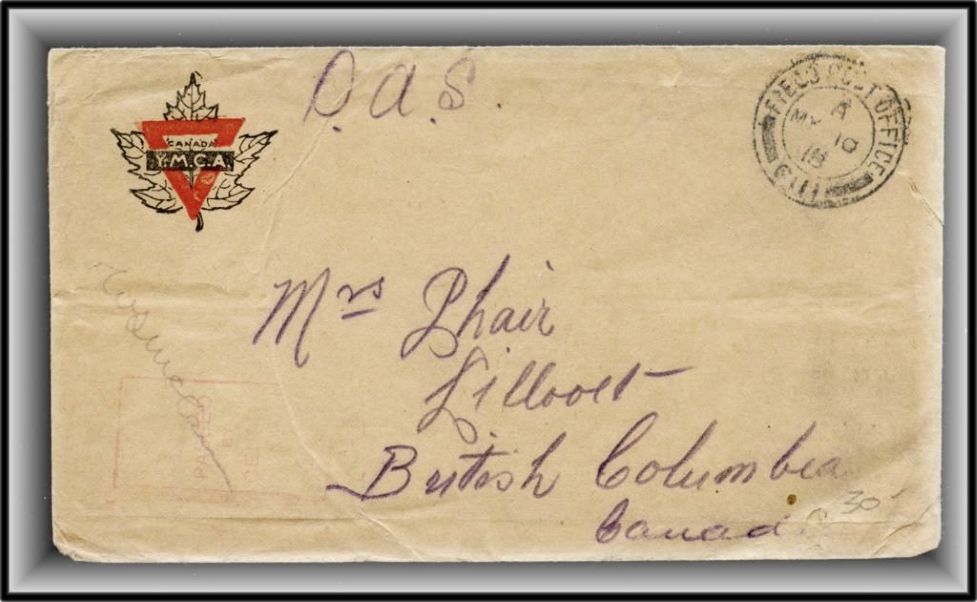 O.A.S.
CANADA
Y.M.C.A.
FIELD POST OFFICE
A
MY 10
18
Mrs Phair
Lillooet
British Columbia
Canada
30